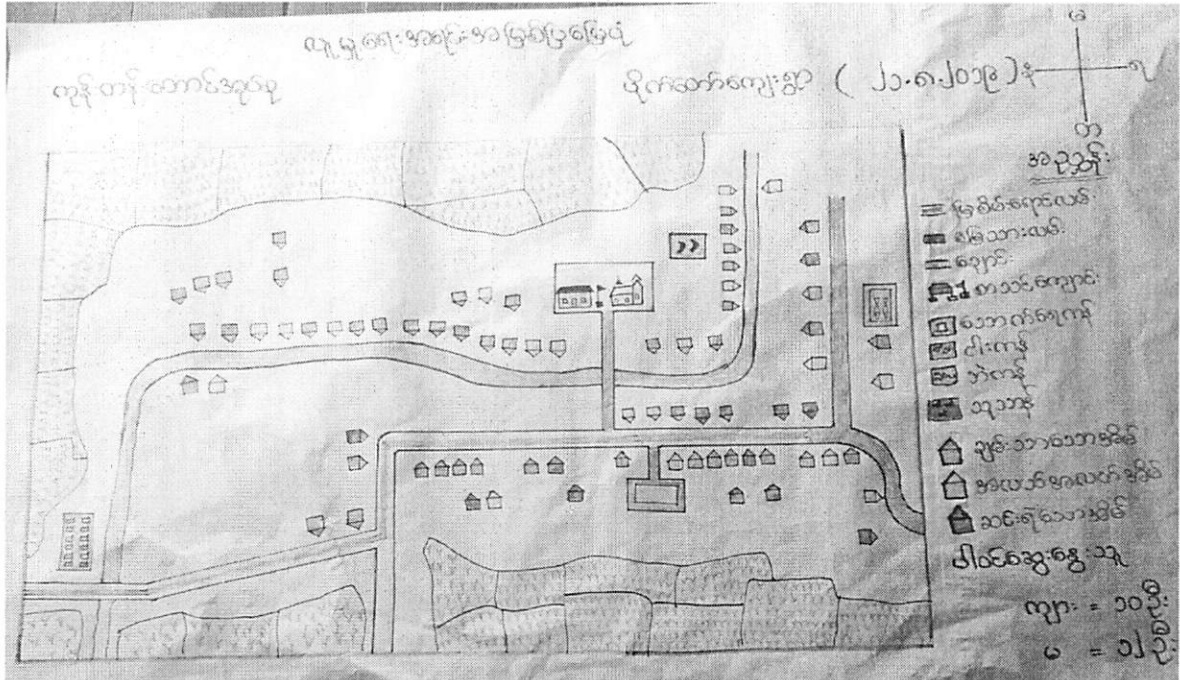 လူမှုရေးအရင်းအမြစ်ပြမြေပုံ
ကုန်းတန်းတောင်အုပ်စု
ဖိုက်ဆော်ကျေးရွာ ( ၂၁.၈.၂၀၁၉ )
မ
န
ရ
တ
အညွှန်း
မြစိမ်းရောင်လမ်း
မြေသားလမ်း
ချောင်း
စာသင်ကျောင်း
သောက်ရေကန်
ငါးကန်
ဘဲကန်
သုသာန်
ချမ်းသာသောအိမ်
အလယ်အလတ်အိမ်
ဆင်းရဲသောအိမ်
ပါဝင်ဆွေးနွေးသူ
ကျား = ၁၀ ဦး
မ = ၁၂ ဦး